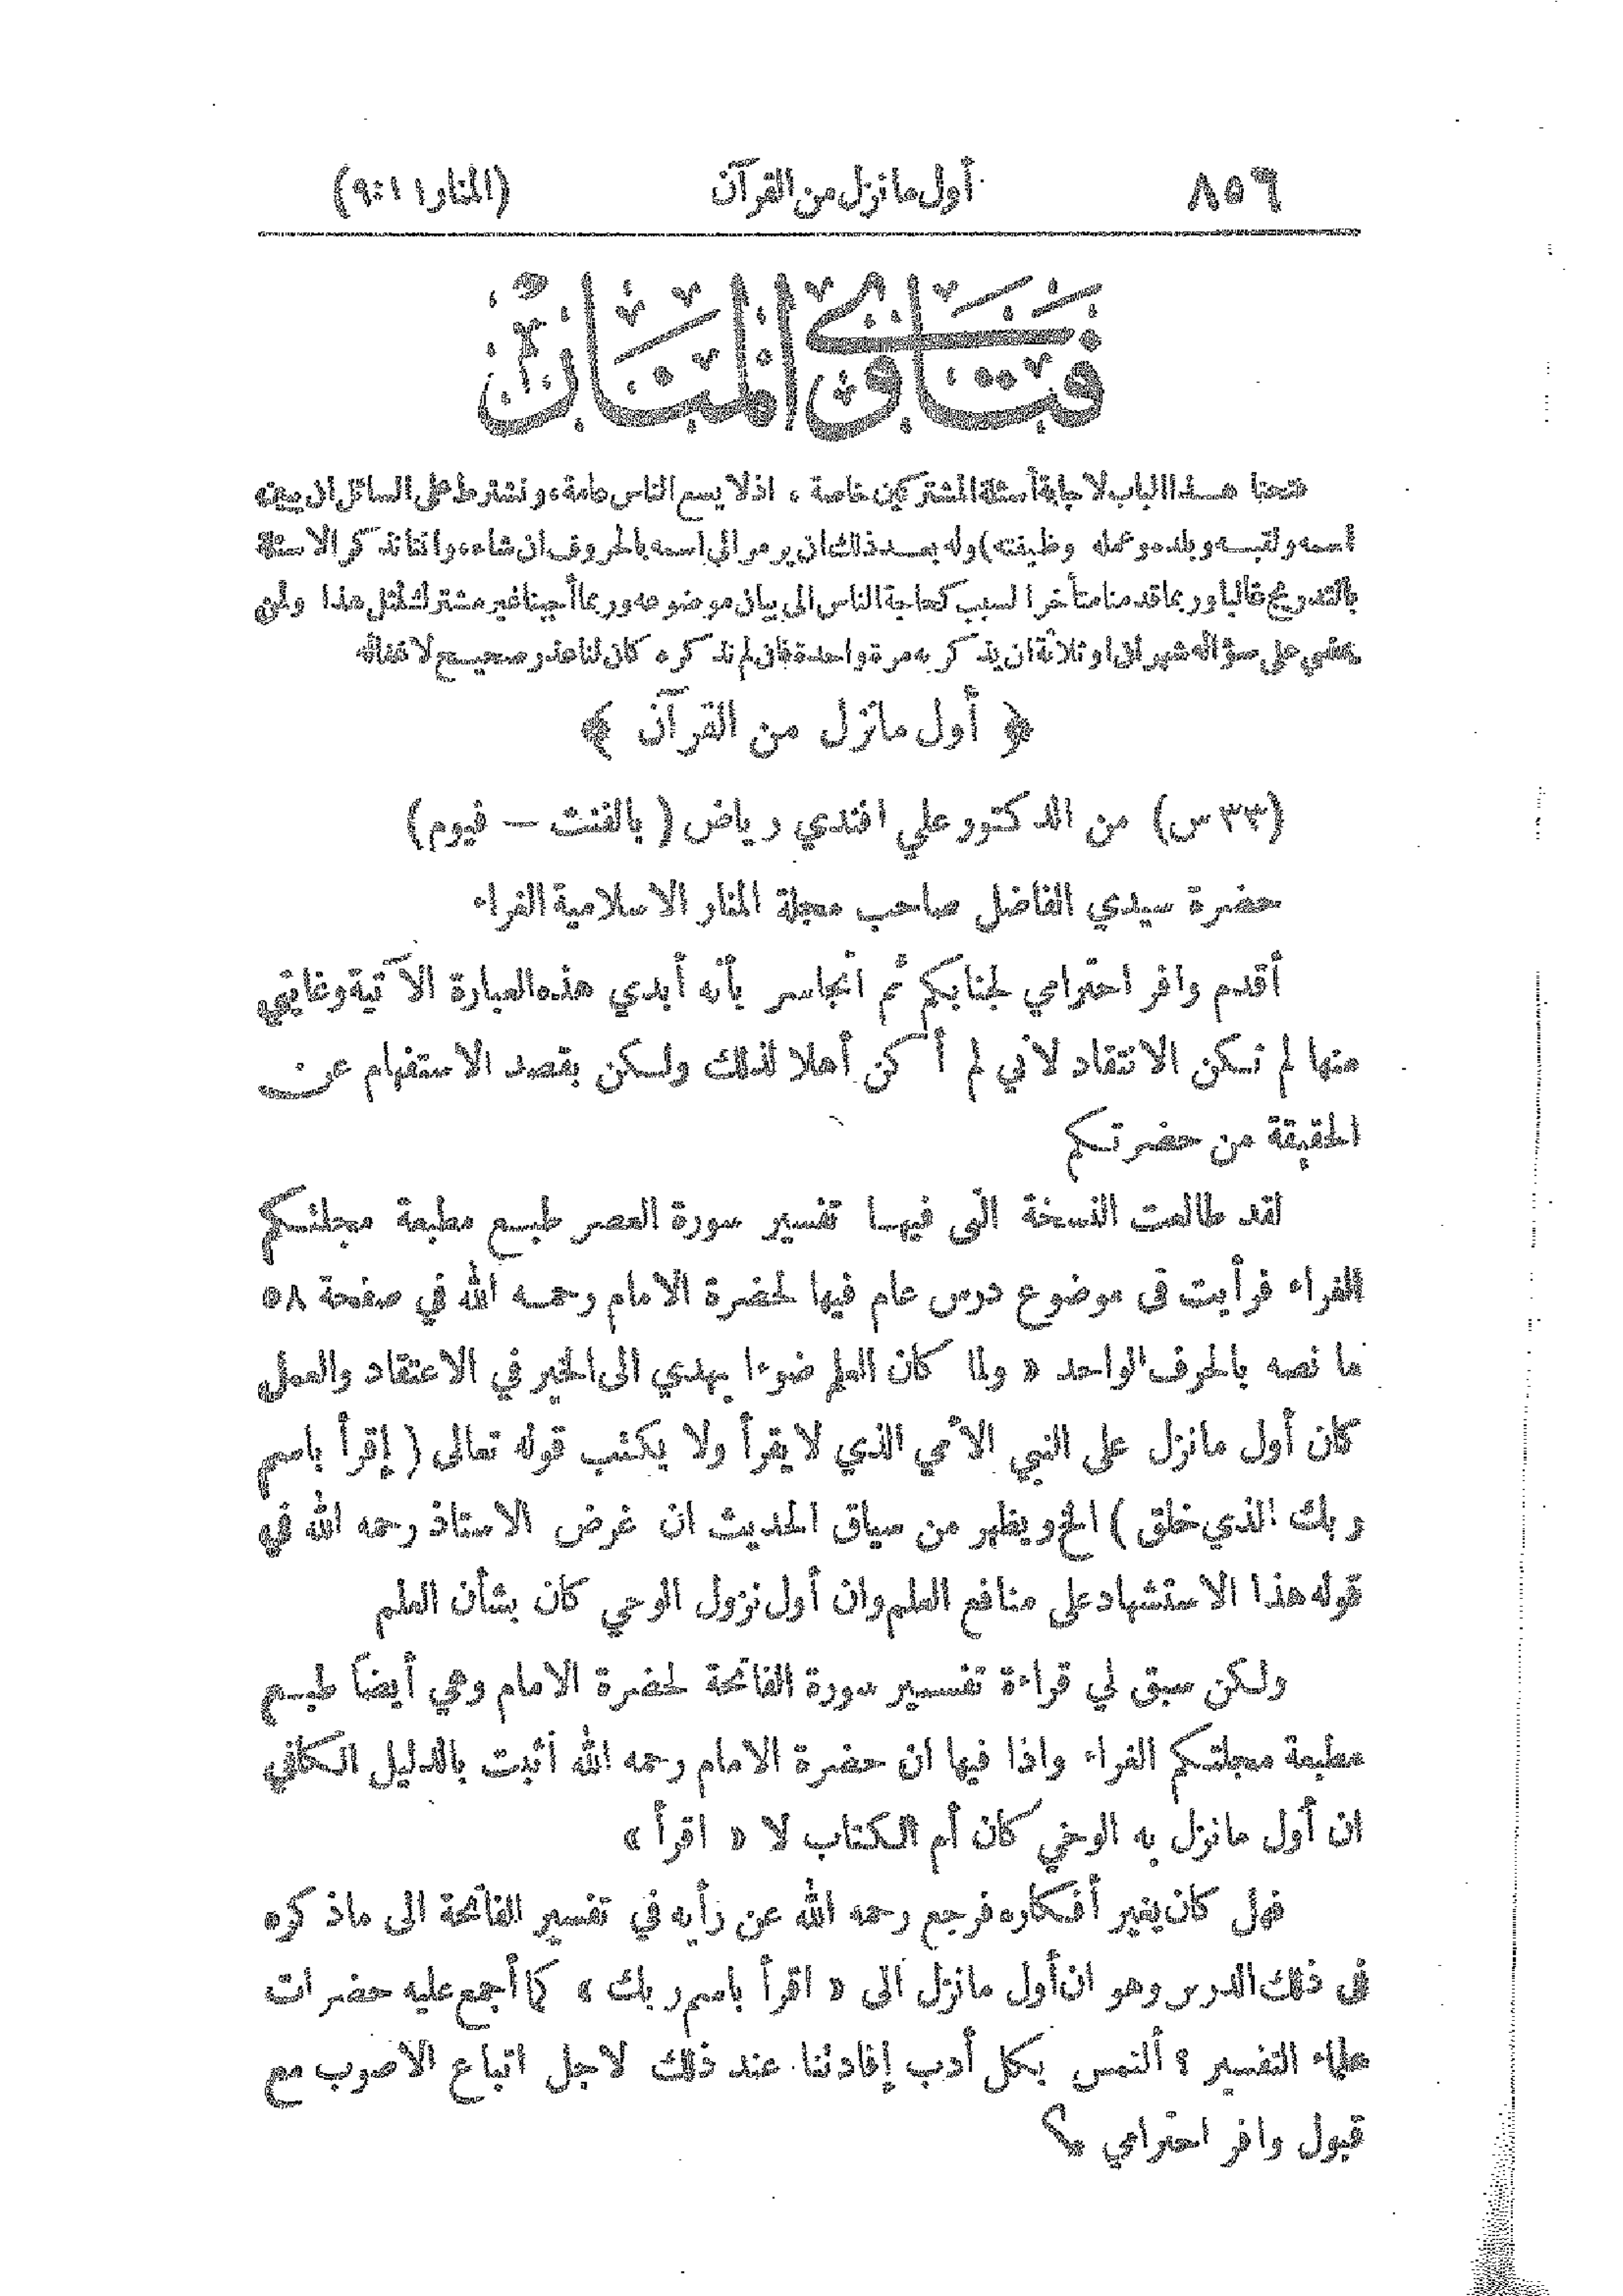 ٨٥٦ أول ما نزل من القرآن (المنار ١١ : ٩)
فتاوى المنار
فتحنا هذا الباب لاجابة أسئلة المشتركين خاصة ، اذ لا يسع الناس عامة ، ونشترط على السائل ان يبين
اسمه ولقبه وبلده وعمله وظيفته) وله بعد ذلك ان يرمز الى اسمه بالحروف ان شاء ، واننا نذكر الاسئلة
بالتدريج غالبا وربما قدمنا متأخرا لسبب كحاجة الناس الى بيان موضوعه وربما أجبنا غير مشترك لمثل هذا ولمن
يمضي على سؤاله شهران او ثلاثة أن يذكر به مرة واحدة فان لم نذكره كان لنا عذر صحيح لاغفاله
﴿ أول ما نزل من القرآن ﴾
(س ٣٣) من الدكتور علي افندي رياض ( بالفنث — فيوم )
حضرة سيدي الفاضل صاحب مجلة المنار الاسلامية الغراء
أقدم وافر احترامي لجنابكم ثم أتجاسر بأنه أبدي هذه العبارة الآتية وغايتي
منها لم تكن الانتقاد لاني لم أكن أهلا لذلك ولكن بقصد الاستفهام عن
الحقيقة من حضرتكم
لقد طالعت النسخة التي فيها تفسير سورة العصر طبع مطبعة مجلتكم
الغراء فرأيت في موضوع درس عام فيها لحضرة الامام رحمه الله في صفحة ٥٨
ما نصه بالحرف الواحد « ولما كان العلم ضوءا يهدي الى الخير في الاعتقاد والعمل
كان أول ما نزل على النبي الأمي الذي لا يقرأ ولا يكتب قوله تعالى ( إقرأ باسم
ربك الذي خلق ) الخ ويظهر من سياق الحديث ان غرض الاستاذ رحمه الله في
قوله هذا الاستشهاد على منافع العلم وان أول نزول الوحي كان بشأن العلم
ولكن سبق لي قراءة تفسير سورة الفاتحة لحضرة الامام وهي أيضاً طبع
مطبعة مجلتكم الغراء واذا فيها ان حضرة الامام رحمه الله أثبت بالدليل الكافي
ان أول ما نزل به الوحي كان أم الكتاب لا « اقرأ »
فهل كان يغير أفكاره فرجع رحمه الله عن رأيه في تفسير الفاتحة الى ما ذكره
في ذلك الدرس وهو ان أول ما نزل الى « اقرأ باسم ربك » كما أجمع عليه حضرات
علماء التفسير ؟ ألتمس بكل أدب إفادتنا عند ذلك لاجل اتباع الاصوب مع
قبول وافر احترامي